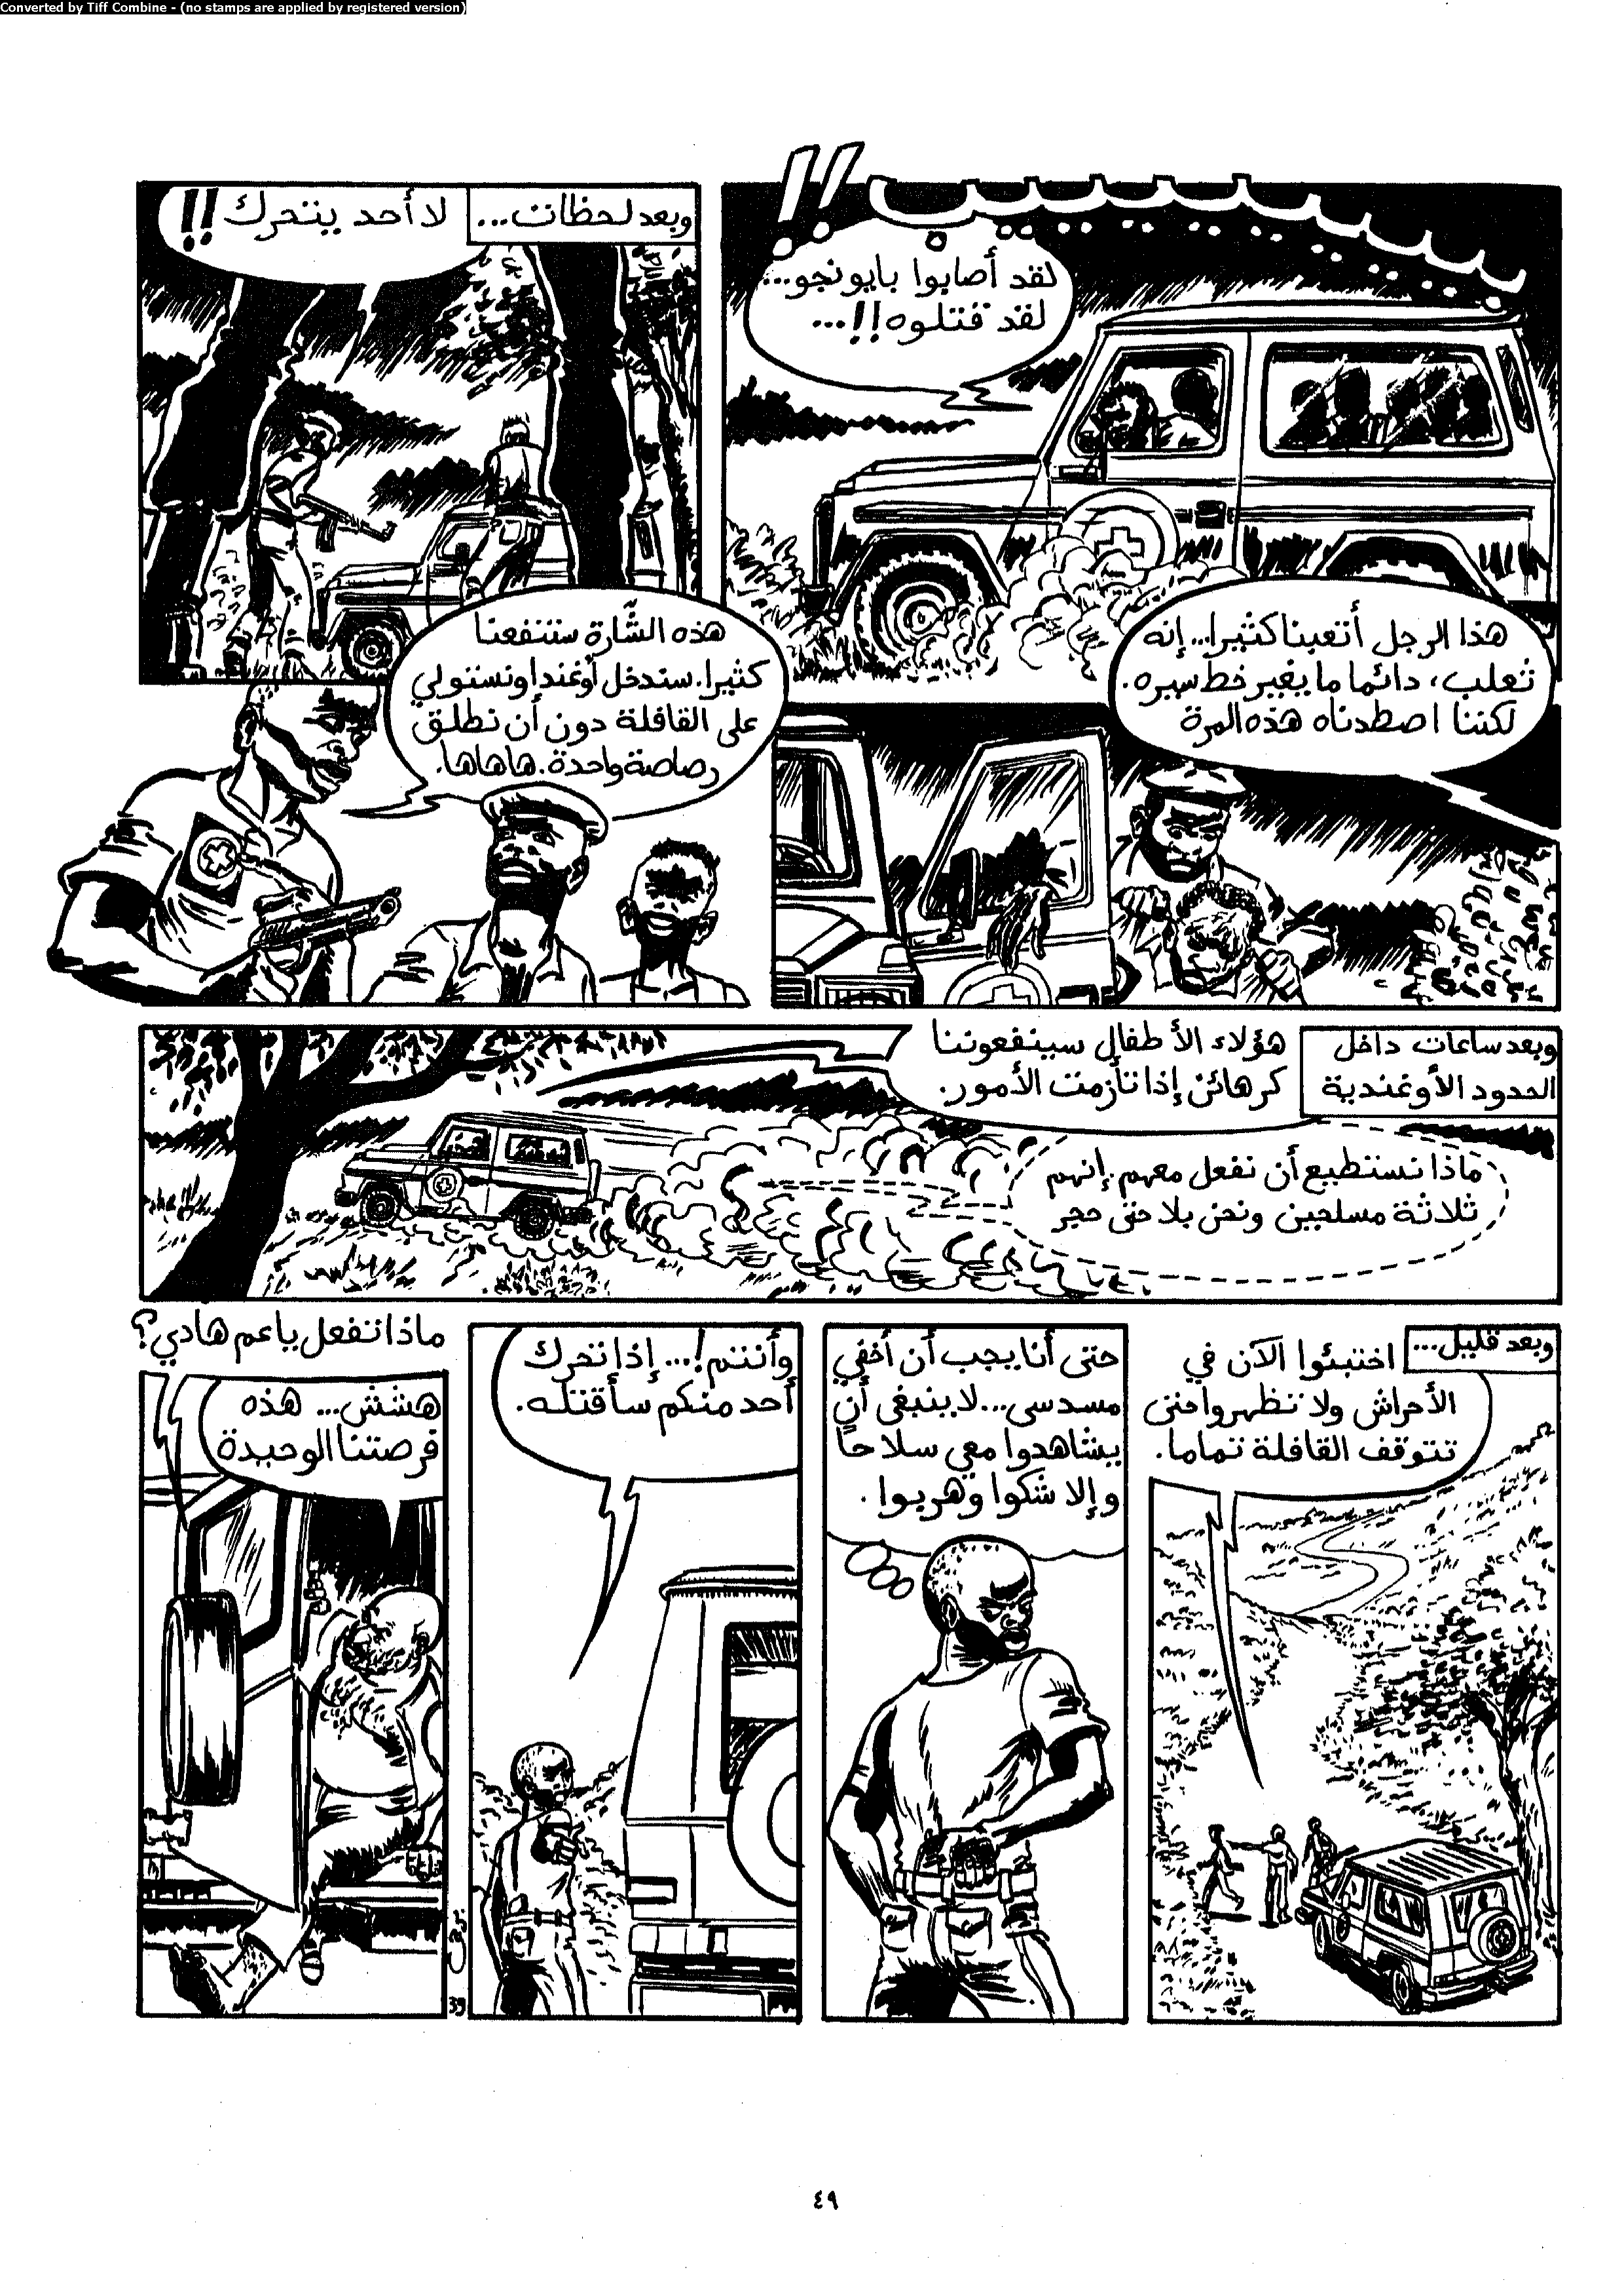 Converted by Tiff Combine - (no stamps are applied by registered version)
لقد أصابوا بايونجو...
لقد قتلوه!!...
وبعد لحظات...
لا أحد يتحرك!!
هذا الرجل أتعبنا كثيرا... إنه
ثعلب، دائما ما يغير خط سيره.
لكننا اصطدناه هذه المرة
هذه الشّارة ستنفعنا
كثيرا. سندخل أوغندا ونستولي
على القافلة دون أن نطلق
رصاصة واحدة. هاهاها.
وبعد ساعات داخل
الحدود الأوغندية
هؤلاء الأطفال سينفعوننا
كرهائن إذا تأزمت الأمور.
ماذا نستطيع أن نفعل معهم. إنهم
ثلاثة مسلحين ونحن بلا حتى حجر
وبعد قليل...
اختبئوا الآن في
الأحراش ولا تظهروا حتى
تتوقف القافلة تماما.
حتى أنا يجب أن أخفي
مسدسى... لا ينبغى أن
يشاهدوا معي سلاحاً
وإلا شكوا وهربوا.
وأنتم!... إذا تحرك
أحد منكم سأقتله.
ماذا تفعل يا عم هادي؟
هششش... هذه
فرصتنا الوحيدة
39
٤٩